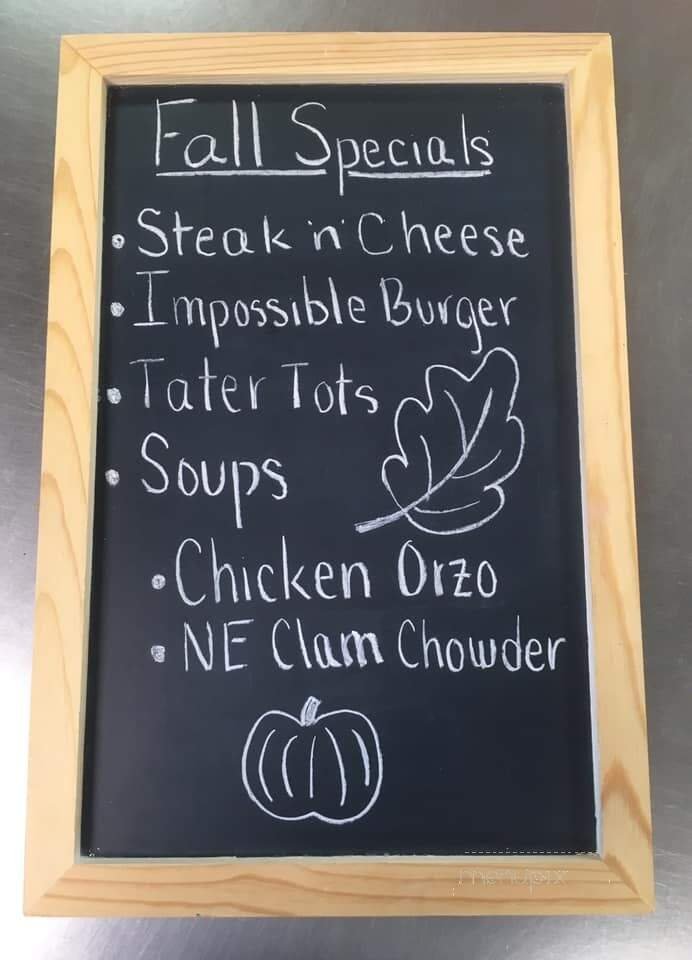 Fall Specials
• Steak 'n' Cheese
• Impossible Burger
• Tater Tots
• Soups
• Chicken Orzo
• NE Clam Chowder
menupix